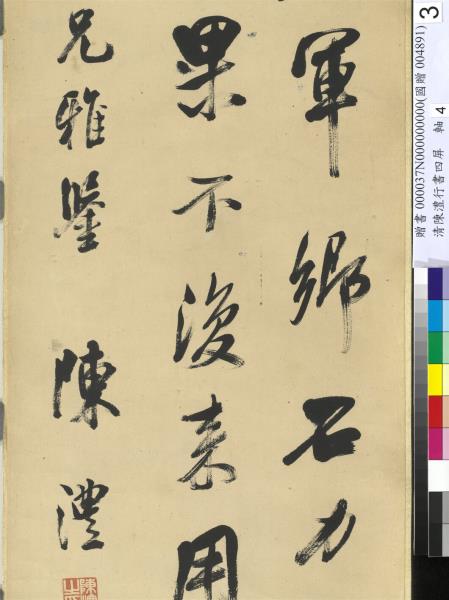 軍鄉石力
果不復來用
兄雅鑒 陳澧
贈書 000037N000000000(國贈 004891)
清陳澧行書四屏 軸 4
3